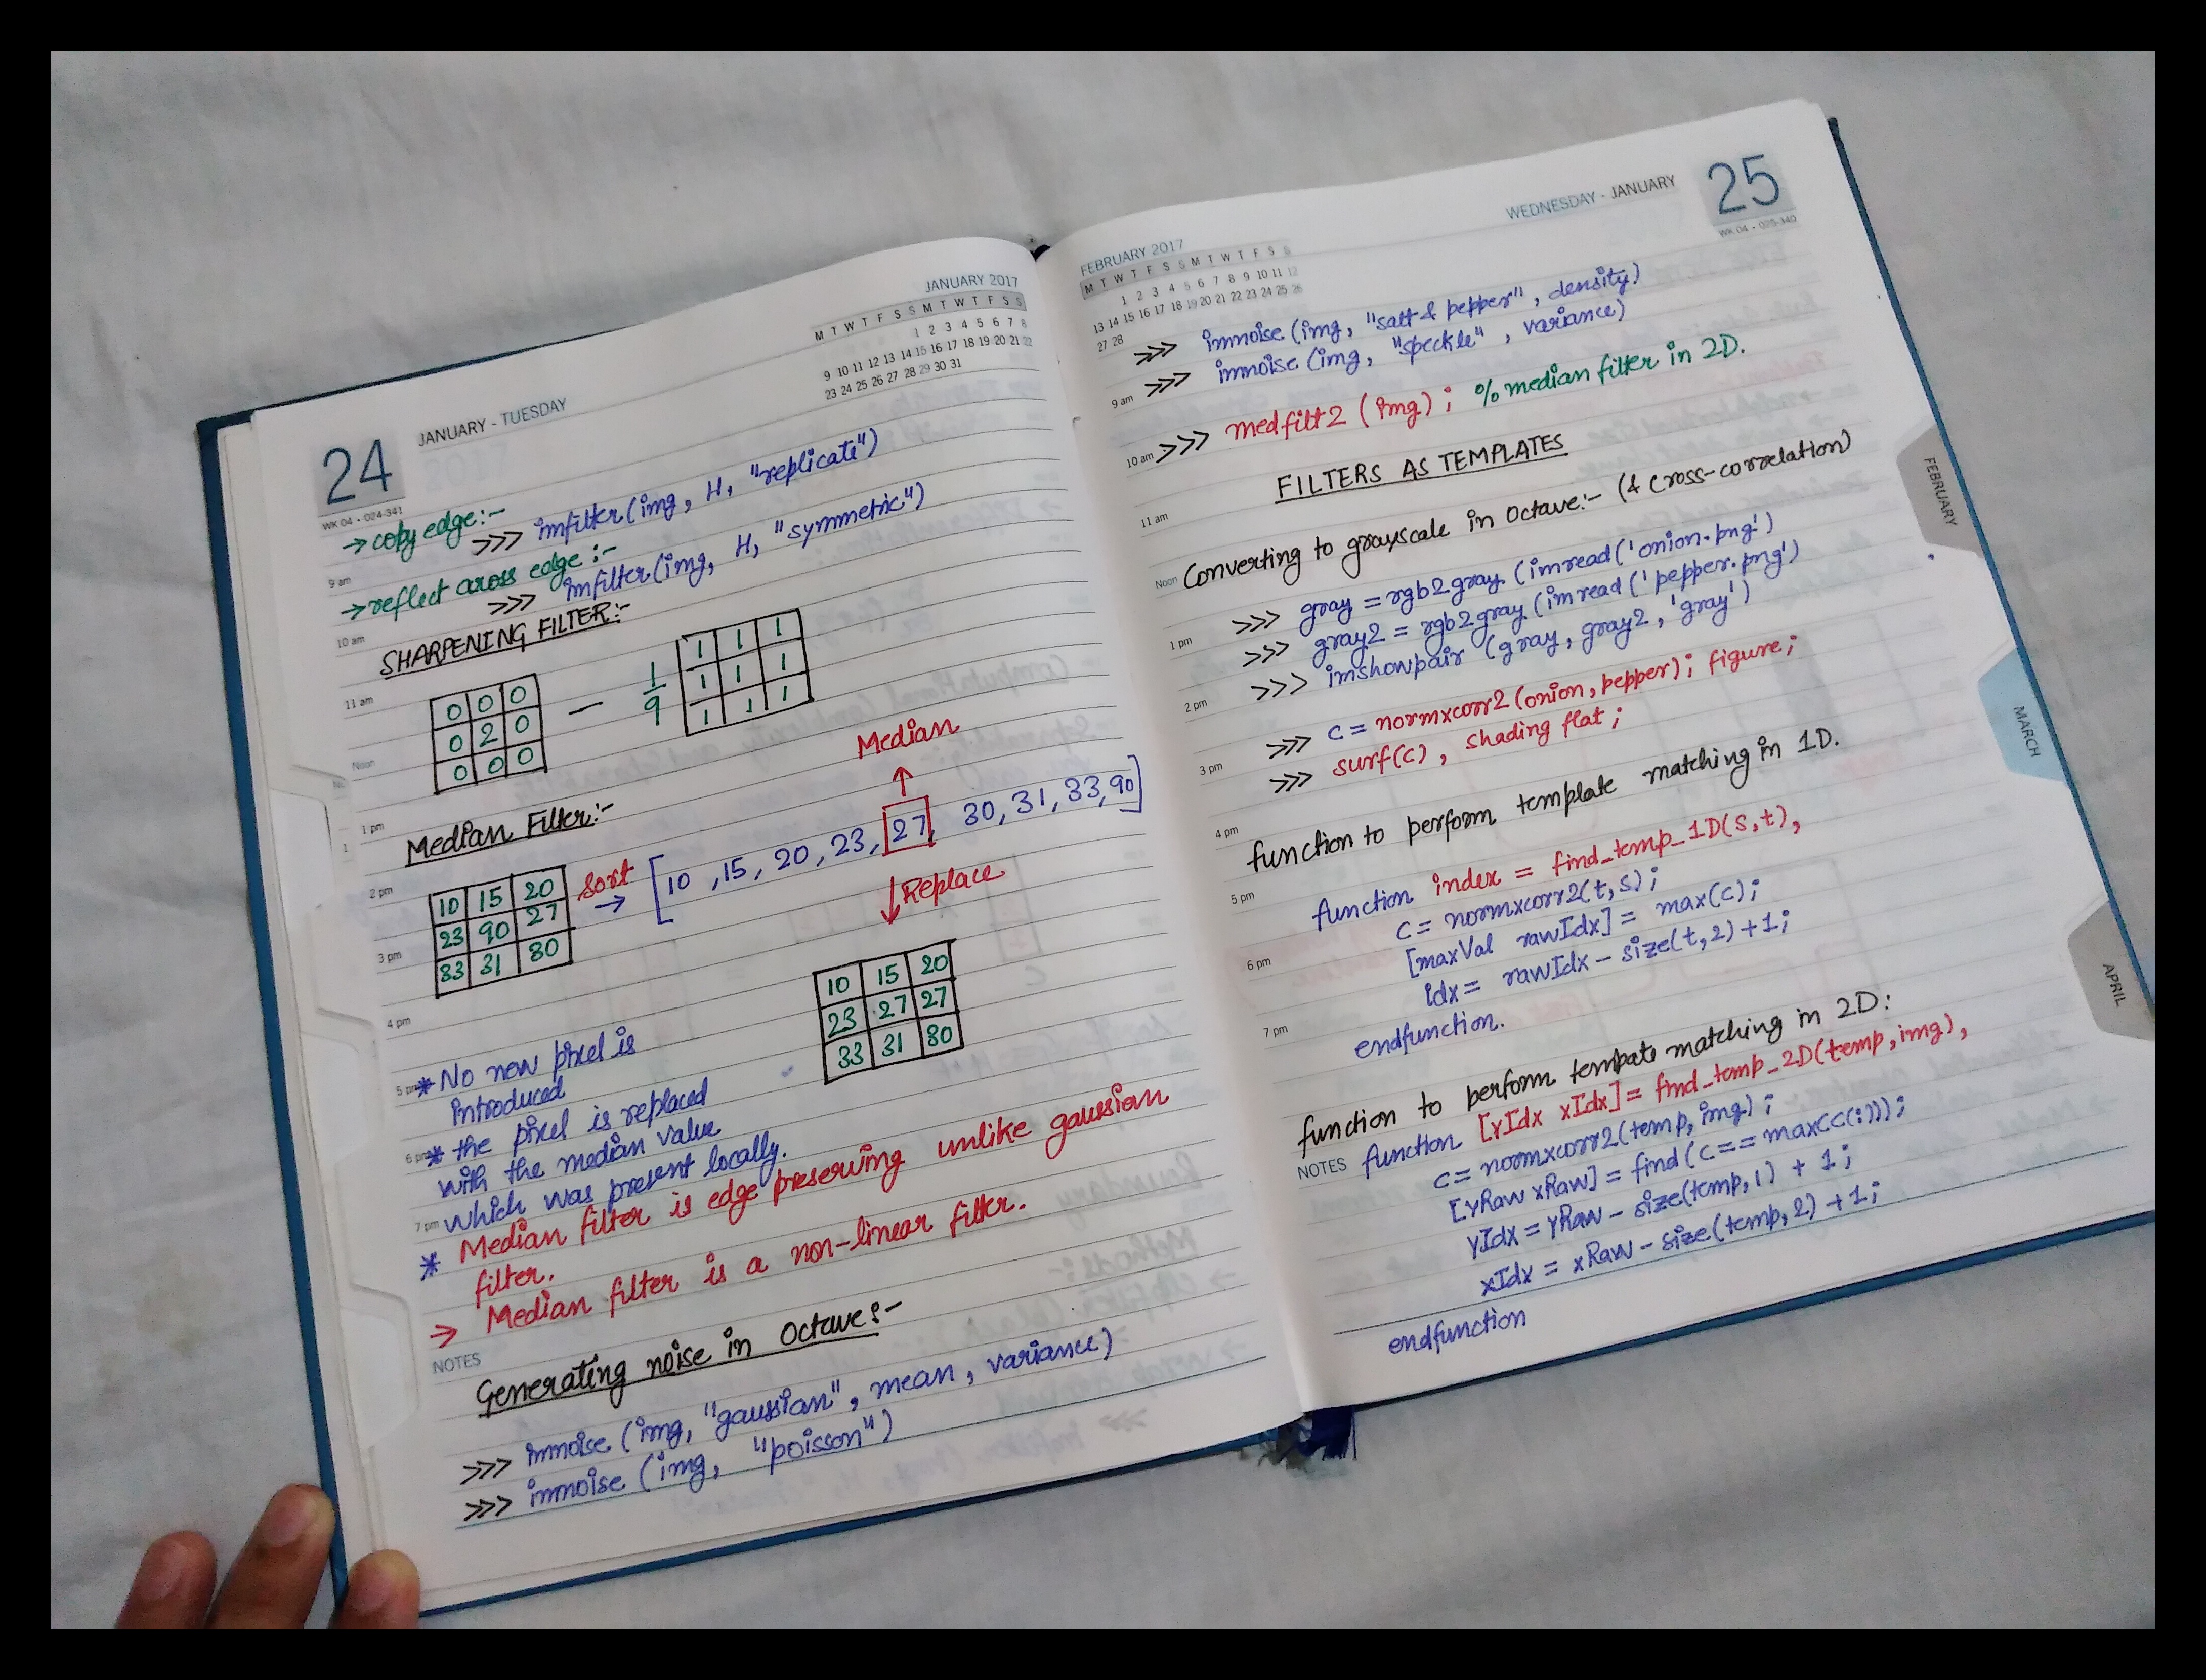 24
JANUARY - TUESDAY
WK 04 - 024-341
JANUARY 2017
M T W T F S S M T W T F S S
1 2 3 4 5 6 7 8
9 10 11 12 13 14 15 16 17 18 19 20 21 22
23 24 25 26 27 28 29 30 31
→ copy edge:-
>>> imfilter(img, H, "replicate")
→ reflect aross edge:-
>>> imfilter(img, H, "symmetric")
9 am
10 am
SHARPENING FILTER:-
11 am
0 0 0
0 2 0
0 0 0
— 1/9
1 1 1
1 1 1
1 1 1
Noon
Median
1 pm
Median Filter:-
2 pm
10 15 20
23 90 27
33 31 30
sort →
[10, 15, 20, 23, 27, 30, 31, 33, 90]
Replace
3 pm
10 15 20
23 27 27
33 31 30
4 pm
5 pm
* No new pixel is
introduced
* the pixel is replaced
6 pm
with the median value
which was present locally.
7 pm
* Median filter is edge preserving unlike gaussian
filter.
→ Median filter is a non-linear filter.
NOTES
Generating noise in Octave:-
>>> imnoise (img, "gaussian", mean, variance)
>>> imnoise (img, "poisson")
FEBRUARY 2017
M T W T F S S M T W T F S S
1 2 3 4 5 6 7 8 9 10 11 12
13 14 15 16 17 18 19 20 21 22 23 24 25 26
27 28
WEDNESDAY - JANUARY
25
WK 04 - 025-340
>>> imnoise (img, "salt & pepper", density)
>>> imnoise (img, "speckle", variance)
9 am
10 am
>>> medfilt2 (img); % median filter in 2D.
FILTERS AS TEMPLATES
11 am
Noon
Converting to grayscale in Octave:- (& cross-correlation)
>>> gray = rgb2gray (imread('onion.png')
1 pm
>>> gray2 = rgb2gray (imread ('pepper.png')
>>> imshowpair (gray, gray2, 'gray')
2 pm
>>> c = normxcorr2 (onion, pepper); figure;
3 pm
>>> surf(c), shading flat;
4 pm
function to perform template matching in 1D.
5 pm
function index = find_temp_1D(s,t),
c = normxcorr2(t, s);
[maxVal rawIdx] = max(c);
6 pm
idx = rawIdx - size(t, 2) + 1;
7 pm
endfunction.
function to perform tempate matching in 2D:
NOTES
function [yIdx xIdx] = find_temp_2D(temp, img),
c = normxcorr2(temp, img);
[yRaw xRaw] = find (c == max(c(:)));
yIdx = yRaw - size(temp, 1) + 1;
xIdx = xRaw - size(temp, 2) + 1;
endfunction
FEBRUARY
MARCH
APRIL